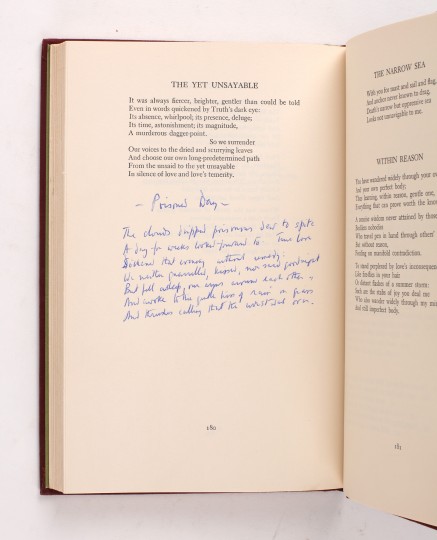 THE YET UNSAYABLE
It was always fiercer, brighter, gentler than could be told
Even in words quickened by Truth's dark eye:
Its absence, whirlpool; its presence, deluge;
Its time, astonishment; its magnitude,
A murderous dagger-point.
So we surrender
Our voices to the dried and scurrying leaves
And choose our own long-predetermined path
From the unsaid to the yet unsayable
In silence of love and love's temerity.
- Poisoned Day -
The clouds dripped poisonous dew to spite
A day for weeks looked-forward to. True love
Sickened that evening without remedy:
We neither quarrelled, kissed, nor said good-night
But fell asleep, our arms around each other,
And awoke to the gentle hiss of rain on grass
And thrushes calling that the worst was over.
180
THE NARROW SEA
With you for mast and sail and flag,
And anchor never known to drag,
Death's narrow but oppressive sea
Looks not unnavigable to me.
WITHIN REASON
You have wandered widely through your own
And your own perfect body;
Thus learning, within reason, gentle one,
Everything that can prove worth the know
A concise wisdom never attained by those
Bodiless nobodies
Who travel pen in hand through others'
But without reason,
Feeding on manifold contradiction.
To stand perplexed by love's inconsequences
Like fireflies in your hair
Or distant flashes of a summer storm:
Such are the stabs of joy you deal me
Who also wander widely through my
And still imperfect body.
181